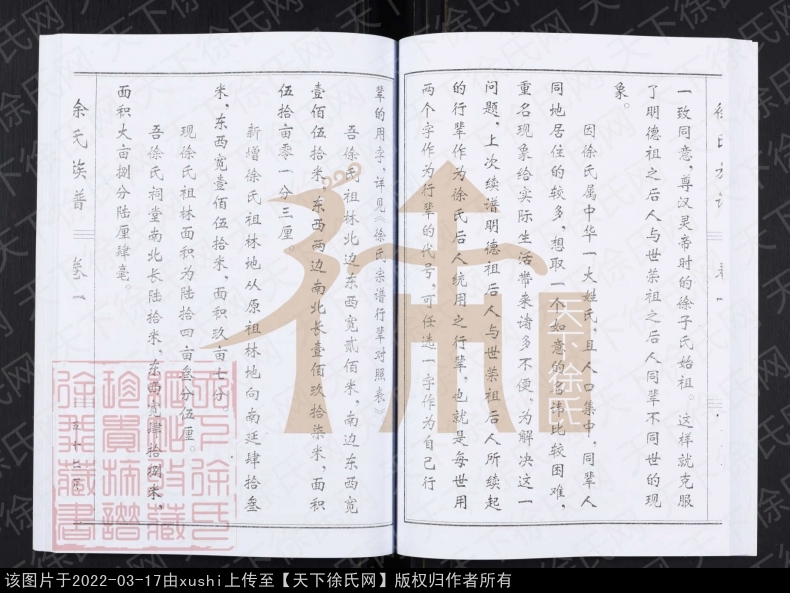 一致同意，尊汉灵帝时的徐子氏始祖。这样就克服
了明德祖之后人与世荣祖之后人同辈不同世的现
象。
因徐氏属中华一大姓氏，且人口集中，同辈人
同地居住的较多，想取一个如意的名讳比较困难，
重名现象给实际生活带来诸多不便。为解决这一
问题，上次续谱明德祖后人与世荣祖后人所续起
的行辈作为徐氏后人统用之行辈，也就是每世用
两个字作为行辈的代号，可任选一字作为自己行
辈的用字，详见《徐氏宗谱行辈对照表》
吾徐氏祖林北边东西宽贰佰米，南边东西宽
壹佰伍拾米，东西两边南北长壹佰玖拾柒米，面积
伍拾亩零一分三厘
新增徐氏祖林地从原祖林地向南延肆拾叁
米，东西宽壹佰伍拾米，面积玖亩七分
现徐氏祖林面积为陆拾四亩叁分伍厘。
吾徐氏祠堂南北长陆拾米，东西宽肆拾捌米，
面积大亩捌分陆厘肆毫。
余氏族普
卷一
天下徐氏
天下徐氏网
徐氏
珍贵
藏书
该图片于2022-03-17由xushi上传至【天下徐氏网】版权归作者所有